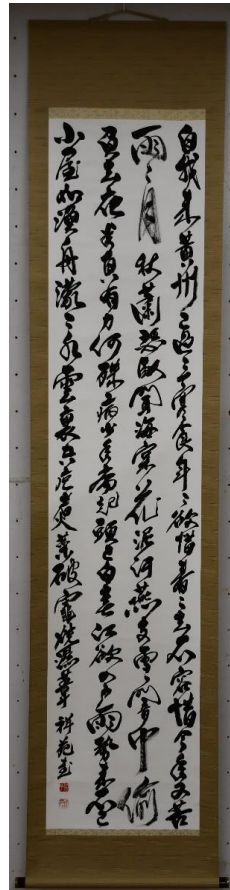 自我来黄州已過三寒食年々欲惜春々去不容惜今年又苦
雨兩月秋蕭瑟臥聞海棠花泥汙燕支雪闇中偷
負去夜半真有力何殊病少年病起頭已白春江欲入戶雨勢来不已
小屋如漁舟濛々水雲裏空庖煮寒菜破竈燒濕葦 祥苑書